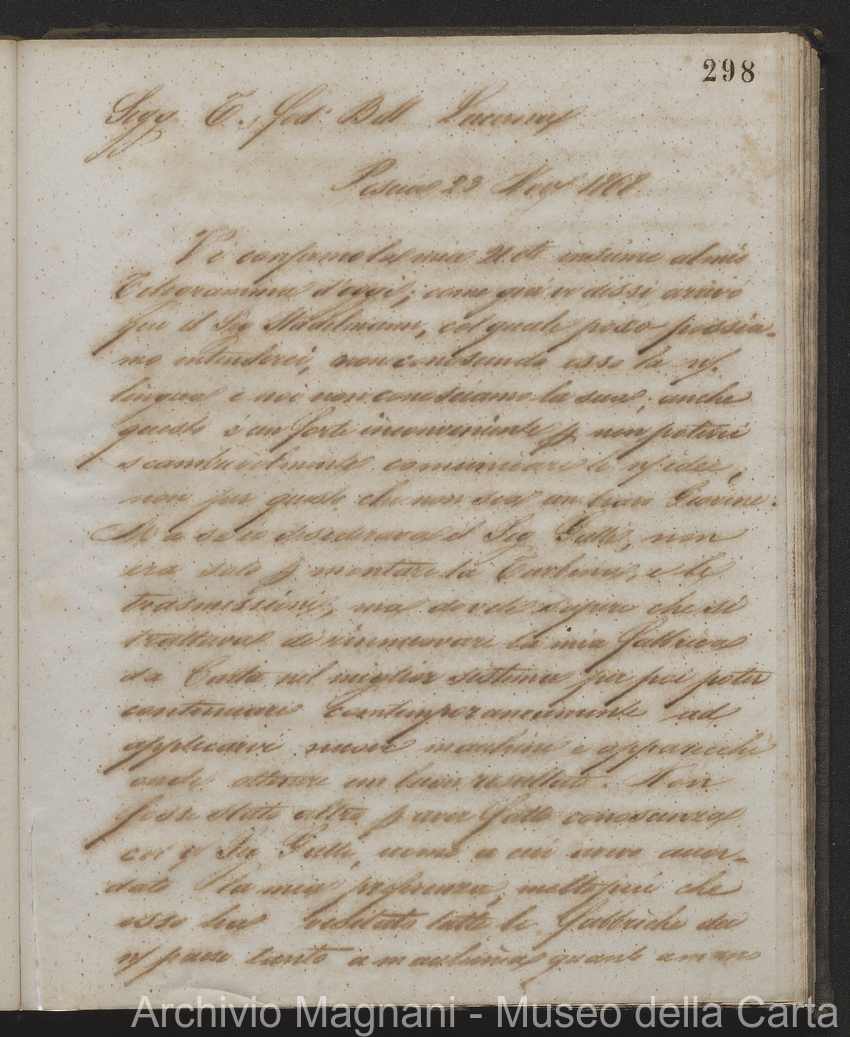 298
Sigg. T. Fed. Bell Lucerna
Pescia 23 1868
Vi confermo la mia 21 ct. insieme al mio
Telegramma d'oggi; come già vi dissi arrivò
jeri il Sig Stadelmann, col quale poco possia-
mo intenderci, non conoscendo esso la n/
lingua e noi non conosciamo la sua; anche
questo è un forte inconveniente p non poterci
scambievolmente comunicare le n/ idee,
non per questo che non sia un bravo Giovine.
Ma se io desiderava il Sig Gatti, non
era solo p montare la Turbina, e le
trasmissioni, ma dovete sapere che si
trattava di rinnuovare la mia Fabbrica
da Carta nel miglior sistema per poi poter
continuare contemporaneamente ad
applicarvi nuove macchine e apparecchi
onde ottenere un buon resultato. Non
fosse stato altro p aver fatto conoscenza
col v/ Sig Gatti, uomo a cui avevo accor-
dato la mia preferenza, molto più che
esso ha visitato tutte le Fabbriche del
n/ paese tanto a macchina quanto a mano
Archivio Magnani - Museo della Carta